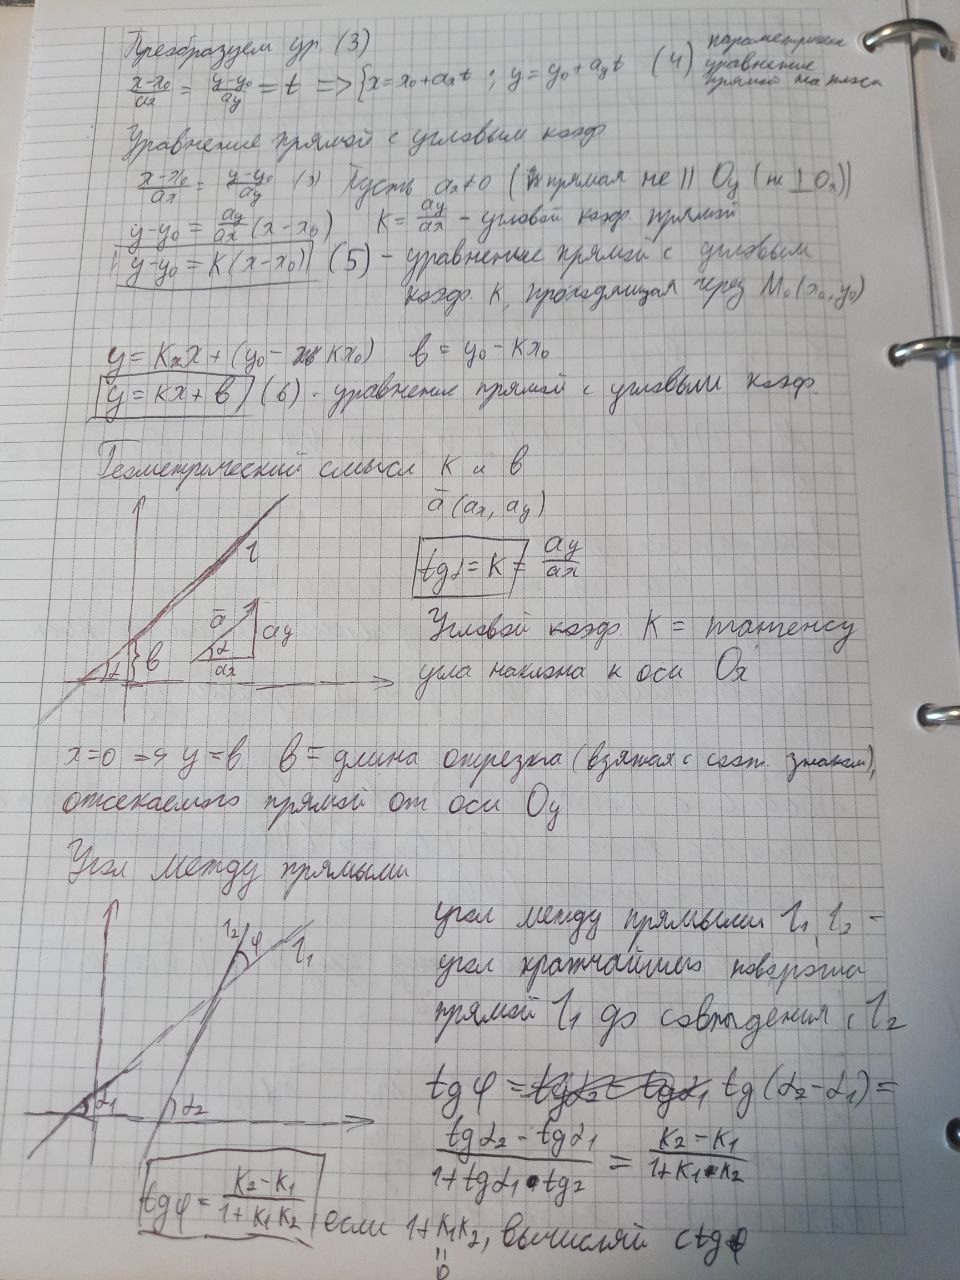 Преобразуем ур. (3)
(x-x₀)/ax = (y-y₀)/ay = t => {x = x₀ + aₓt ; y = y₀ + a_y t (4) параметрическ уравнение прямой на плоск
Уравнение прямой с угловым коэф.
(x-x₀)/ax = (y-y₀)/ay (3) Пусть aₓ≠0 (прямая не || Oy (не ⊥ Oₓ))
y-y₀ = ay/ax (x-x₀) K = ay/ax - угловой коэф. прямой
y-y₀ = K(x-x₀) (5) - уравнение прямой с угловым
коэф. K, проходящая через M₀(x₀, y₀)
y = Kx + (y₀ - Kx₀) b = y₀ - Kx₀
y = Kx + b (6) - уравнение прямой с угловым коэф.
Геометрический смысл K и b
ā (aₓ, a_y)
l
tgα = K = ay/ax
ā
ay
α
ax
α
b
Угловой коэф. K = тангенсу
угла наклона к оси Ox
x=0 => y=b b = длина отрезка (взятая с соот. знаком),
отсекаемого прямой от оси Oy
Угол между прямыми
l₂ φ l₁
α₁ α₂
угол между прямыми l₁, l₂ -
угол кратчайшего поворота
прямой l₁ до совпадения с l₂
tg φ = tg(α₂-α₁) =
(tgα₂ - tgα₁)/(1+tgα₁•tg₂) = (K₂-K₁)/(1+K₁•K₂)
tgφ = (K₂-K₁)/(1+K₁K₂) если 1+K₁K₂, вычисляй ctgφ
"
0